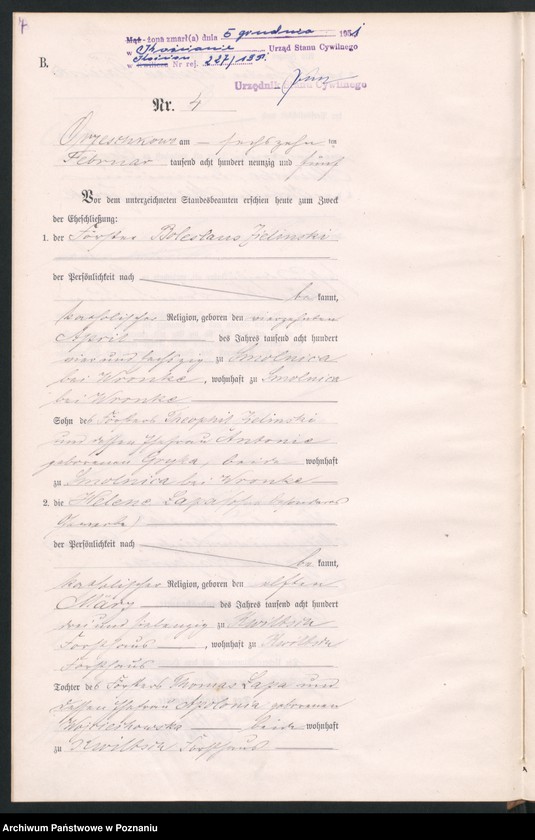 4
Mąż - żona zmarł(a) dnia 5 grudnia 1951
w Kościanie Urząd Stanu Cywilnego
Kościan Nr rej. 227/1951
Urzędnik Stanu Cywilnego
B.
Nr. 4
Orzeschkowo am – sechszehn ten
Februar tausend acht hundert neunzig und fünf
Vor dem unterzeichneten Standesbeamten erschien heute zum Zweck
der Eheschließung:
1. der Förster Boleslaus Zielinski
der Persönlichkeit nach
be kannt,
katholischer Religion, geboren den vierzehnten
April des Jahres tausend acht hundert
vier und sechszig zu Smolnica
bei Wronke, wohnhaft zu Smolnica
bei Wronke
Sohn des Försters Theophil Zielinski
und dessen Ehefrau Antonie
geborenen Gryka, beide wohnhaft
zu Smolnica bei Wronke
2. die Helene Lapa ohne besonderes
Gewerbe
der Persönlichkeit nach
be kannt,
katholischer Religion, geboren den elften
März des Jahres tausend acht hundert
drei und siebenzig zu
Forsthaus, wohnhaft zu
Forsthaus
Tochter des Försters Thomas Lapa und
dessen Ehefrau Apolonia geborenen
Wojciechowska beide wohnhaft
zu Forsthaus
Archiwum Państwowe w Poznaniu